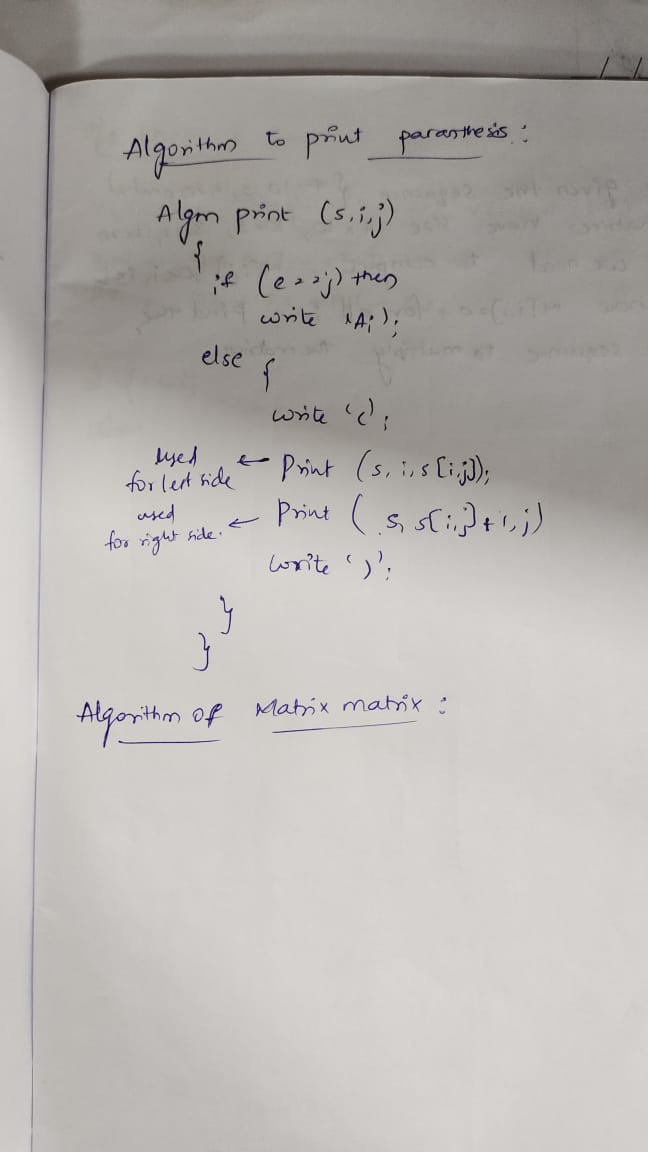 Algorithm to print paranthesis :
Algm print (s,i,j)
{
if (e==j) then
write 'Ai';
else {
write '(';
used for left side ← Print (s, i, s[i,j]);
used for right side. ← Print (s, s[i,j]+1, j)
write ')';
}
}
Algorithm of Matrix matrix :